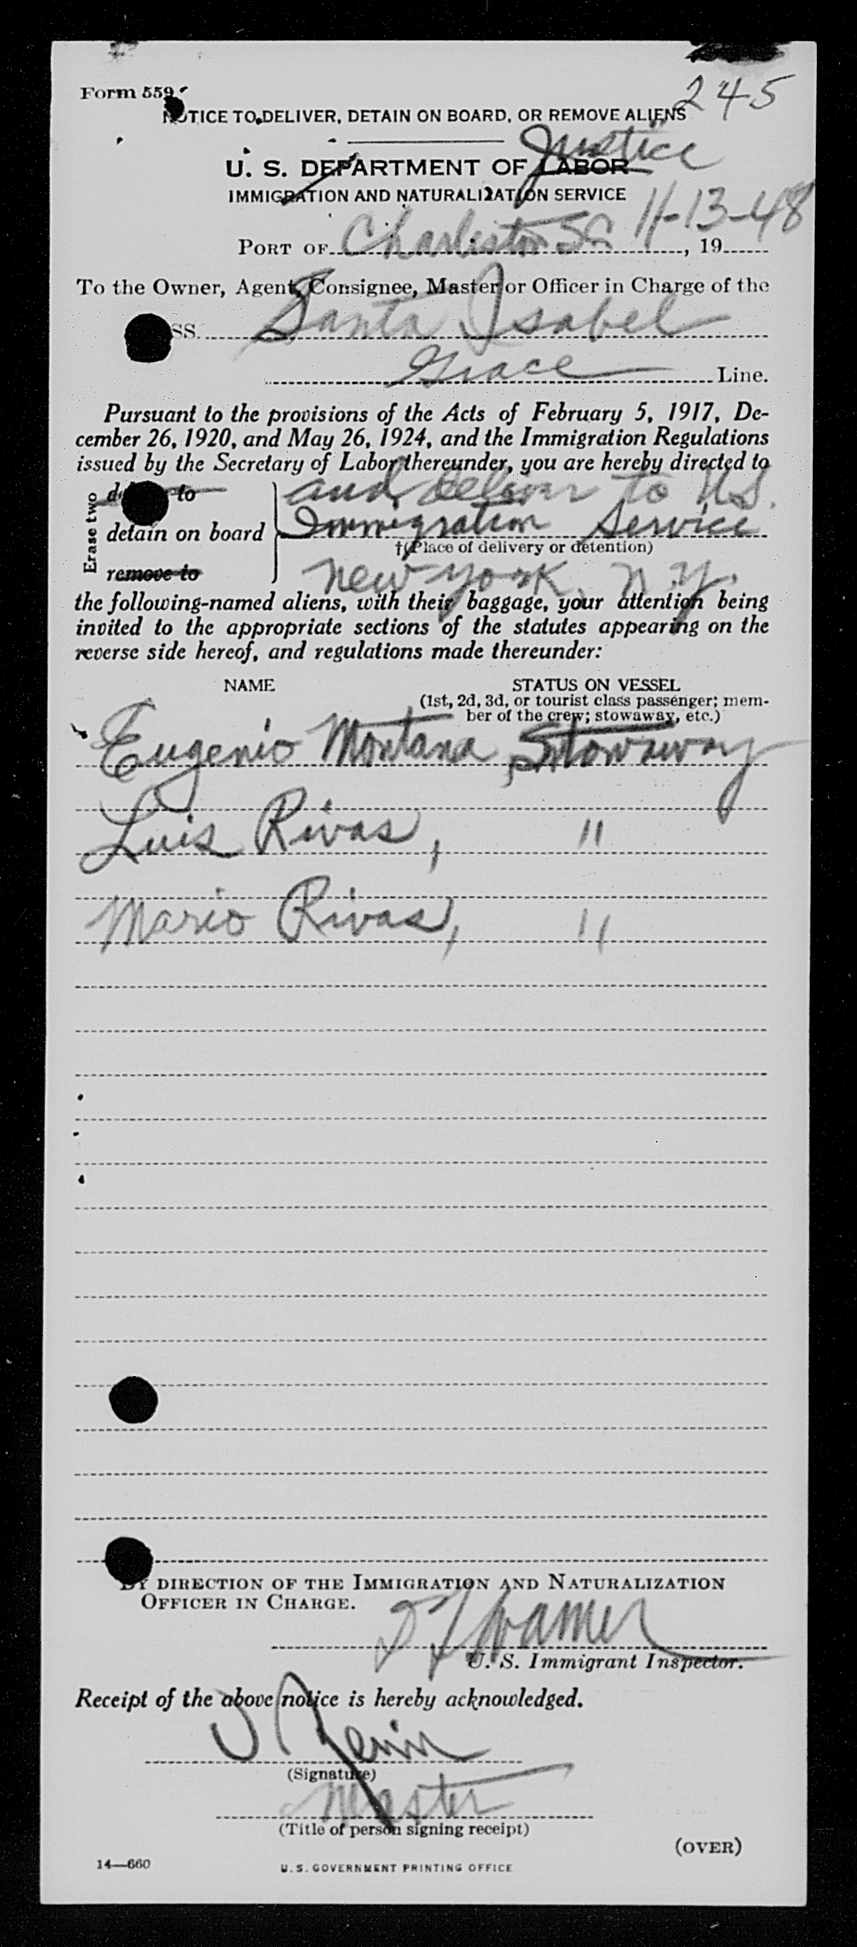 245
Form 559
NOTICE TO DELIVER, DETAIN ON BOARD, OR REMOVE ALIENS
U. S. DEPARTMENT OF LABOR Justice
IMMIGRATION AND NATURALIZATION SERVICE
PORT OF Charleston SC 11-13-48, 19
To the Owner, Agent, Consignee, Master or Officer in Charge of the
SS. Santa Isabel
Grace Line.
Pursuant to the provisions of the Acts of February 5, 1917, De-
cember 26, 1920, and May 26, 1924, and the Immigration Regulations
issued by the Secretary of Labor thereunder, you are hereby directed to
Erase two
to and deliver to U.S.
detain on board Immigration Service
†(Place of delivery or detention)
remove to New York, N.Y.
the following-named aliens, with their baggage, your attention being
invited to the appropriate sections of the statutes appearing on the
reverse side hereof, and regulations made thereunder:
NAME STATUS ON VESSEL
(1st, 2d, 3d, or tourist class passenger; mem-
ber of the crew; stowaway, etc.)
Eugenio Montana, Stowaway
Luis Rivas, "
Mario Rivas, "
BY DIRECTION OF THE IMMIGRATION AND NATURALIZATION
OFFICER IN CHARGE.
U. S. Immigrant Inspector.
Receipt of the above notice is hereby acknowledged.
(Signature)
Master
(Title of person signing receipt)
(OVER)
14—660 U. S. GOVERNMENT PRINTING OFFICE